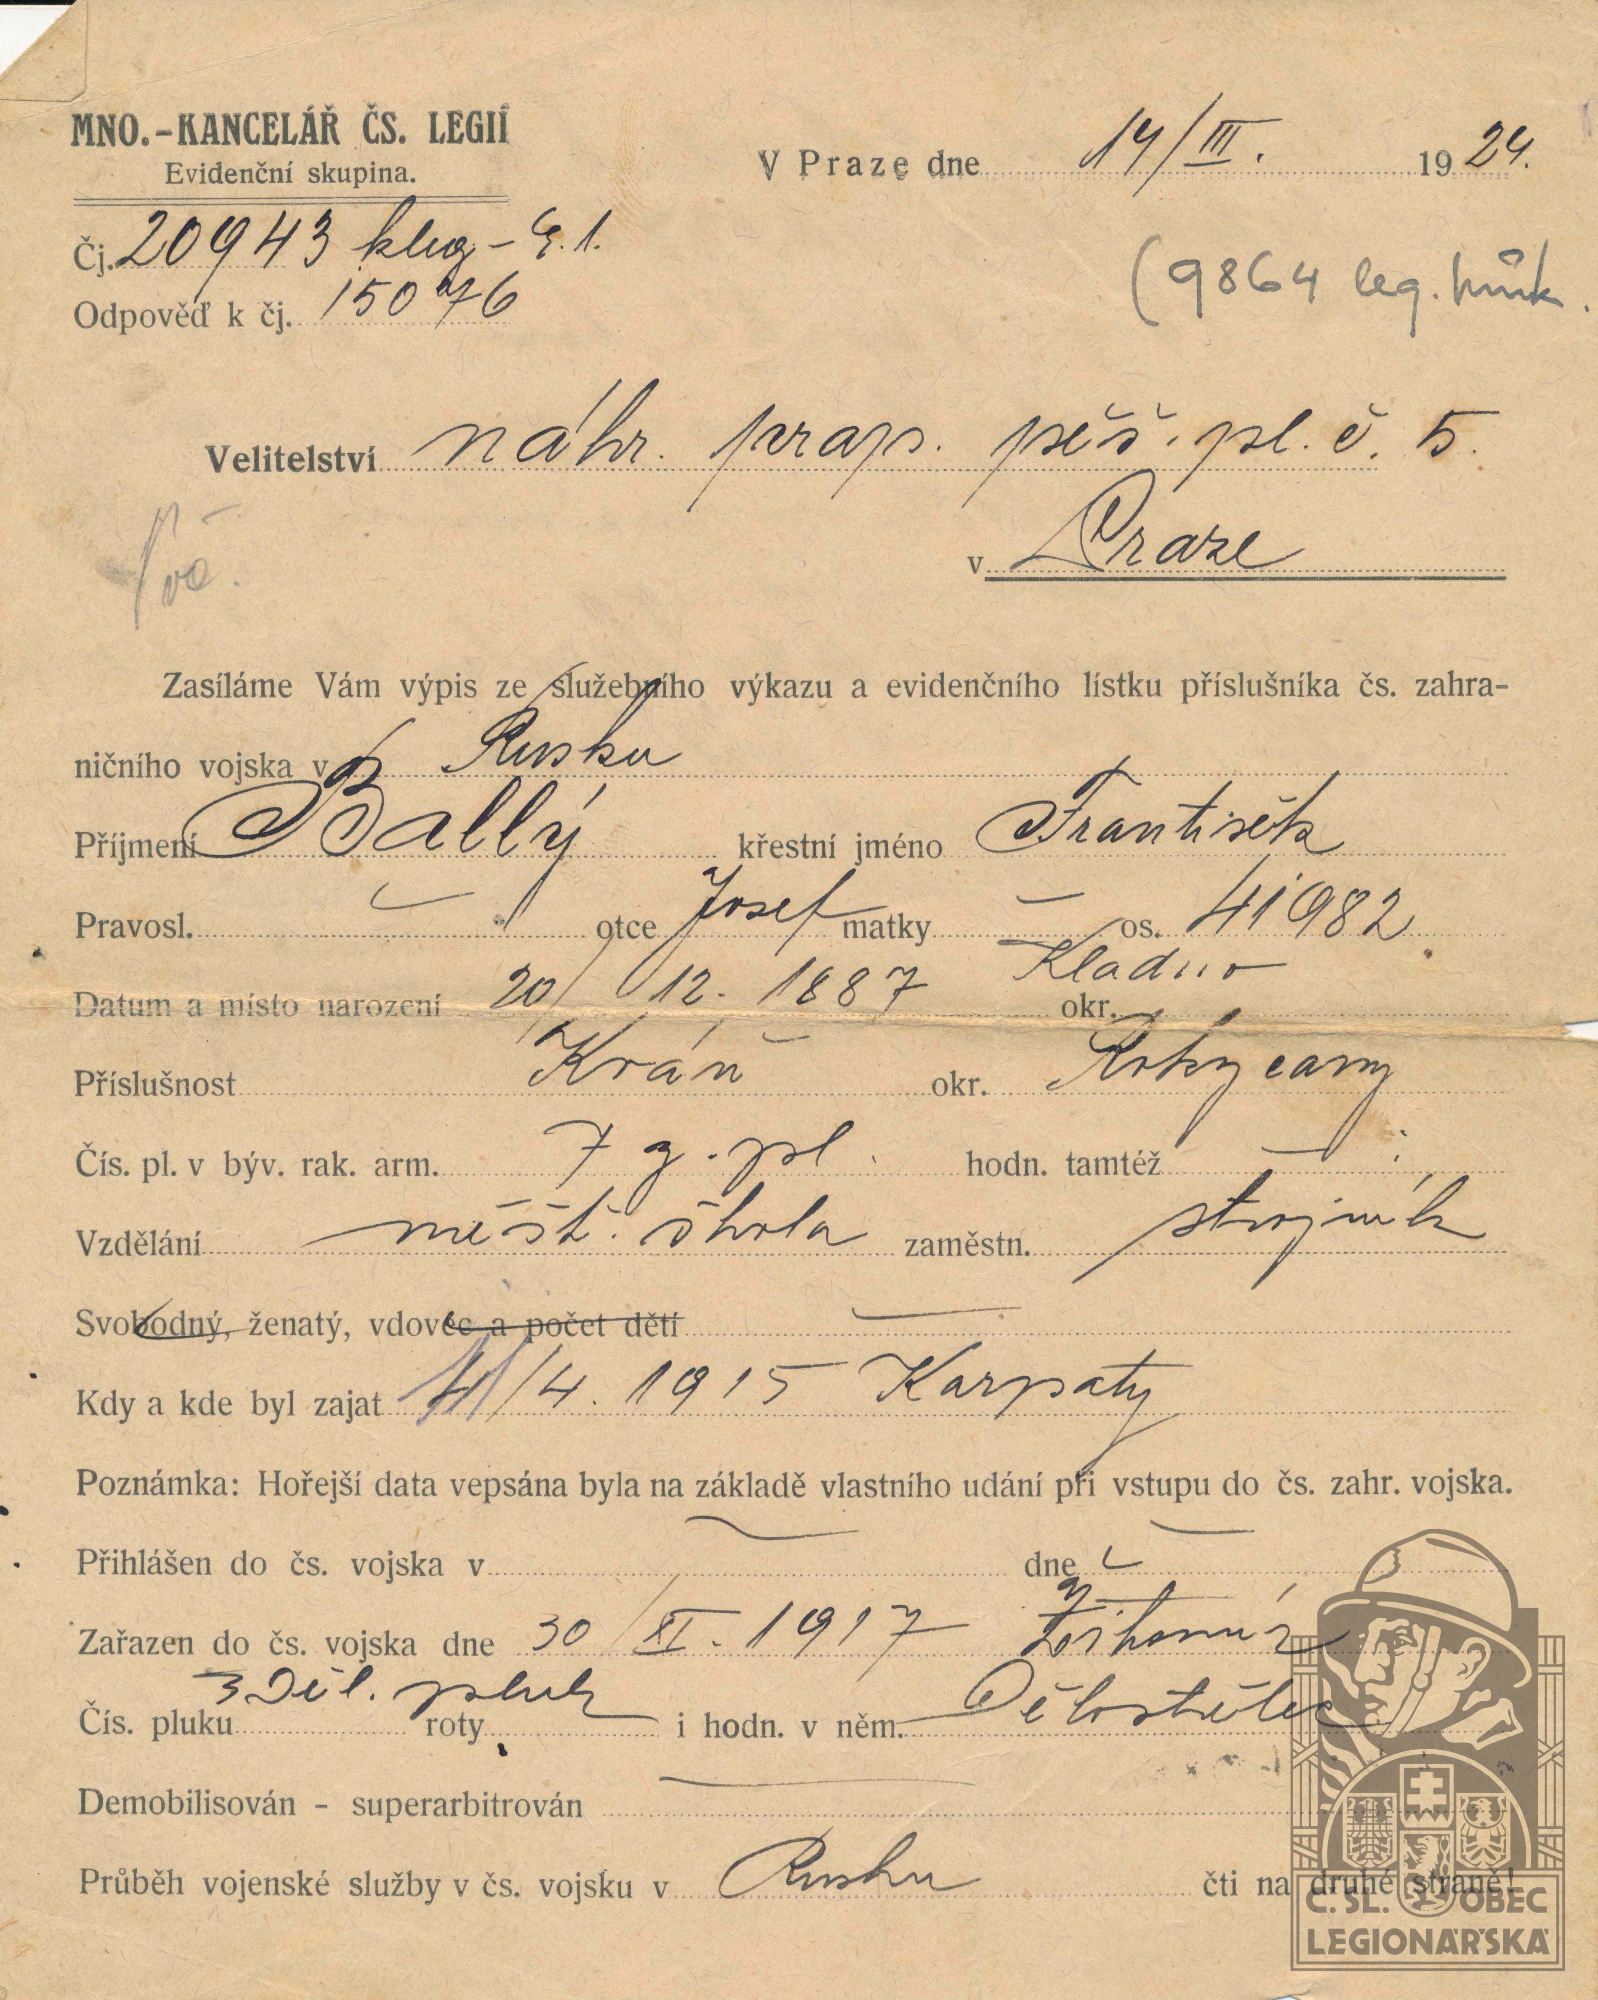 MNO.-KANCELÁŘ ČS. LEGIÍ
Evidenční skupina.
V Praze dne 14/III. 1924.
Čj. 20943 kleg - E.1.
Odpověď k čj. 15076
(9864 leg.
Velitelství náhr. prap. pěš. pl. č. 5.
v Praze
Zasíláme Vám výpis ze služebního výkazu a evidenčního lístku příslušníka čs. zahra-
ničního vojska v Rusku
Příjmení Ballý křestní jméno František
Pravosl. — otce Josef matky — os. 41982
Datum a místo narození 20/12. 1887 Kladno okr.
Příslušnost Kráň okr. Rokycany
Čís. pl. v býv. rak. arm. 7 z. pl. hodn. tamtéž —
Vzdělání měšť. škola zaměstn. strojník
Svobodný, ženatý, vdovec a počet dětí —
Kdy a kde byl zajat /4. 1915 Karpaty
Poznámka: Hořejší data vepsána byla na základě vlastního udání při vstupu do čs. zahr. vojska.
Přihlášen do čs. vojska v — dne —
Zařazen do čs. vojska dne 30/XI. 1917 Žitomír
Čís. pluku 3 Děl. pluk roty i hodn. v něm. Dělostřelec
Demobilisován - superarbitrován —
Průběh vojenské služby v čs. vojsku v Rusku čti na druhé straně!
Č. SL. OBEC
LEGIONÁŘSKÁ